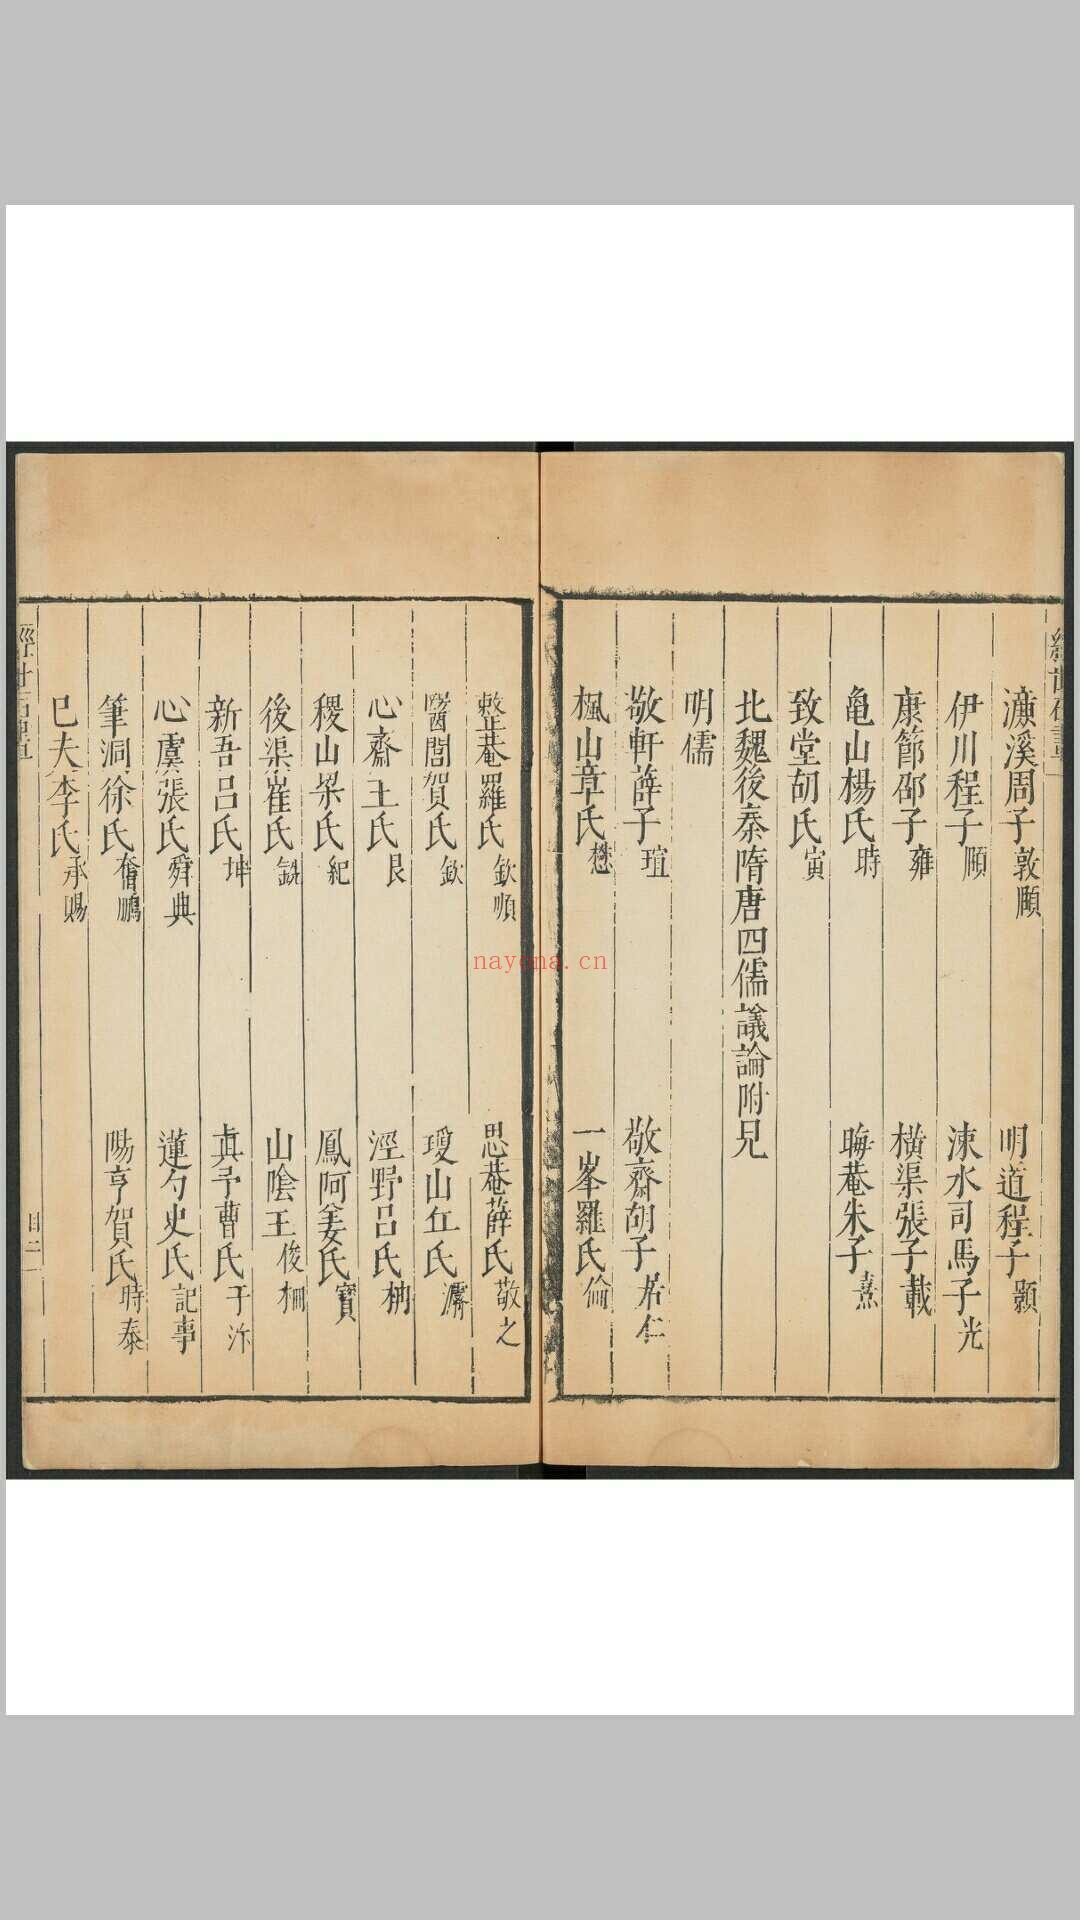 濂溪周子敦頤 明道程子顥
伊川程子頤 涑水司馬子光
康節邵子雍 橫渠張子載
亀山楊氏時 晦菴朱子熹
致堂胡氏寅
北魏後秦隋唐四儒議論附見
明儒
敬軒薛子瑄 敬齋胡子居仁
楓山章氏懋 一峯羅氏倫
整菴羅氏欽順 思菴薛氏敬之
醫閭賀氏欽 瓊山丘氏濬
心齋王氏艮 涇野呂氏柟
稷山梁氏紀 鳳阿姜氏寶
後渠崔氏銑 山陰王俊柵
新吾呂氏坤 真予曹氏于汴
心虞張氏舜典 蓮勺史氏記事
筆洞徐氏奮鵬 陽亨賀氏時泰
巳夫李氏承賜
目二
nayona.cn